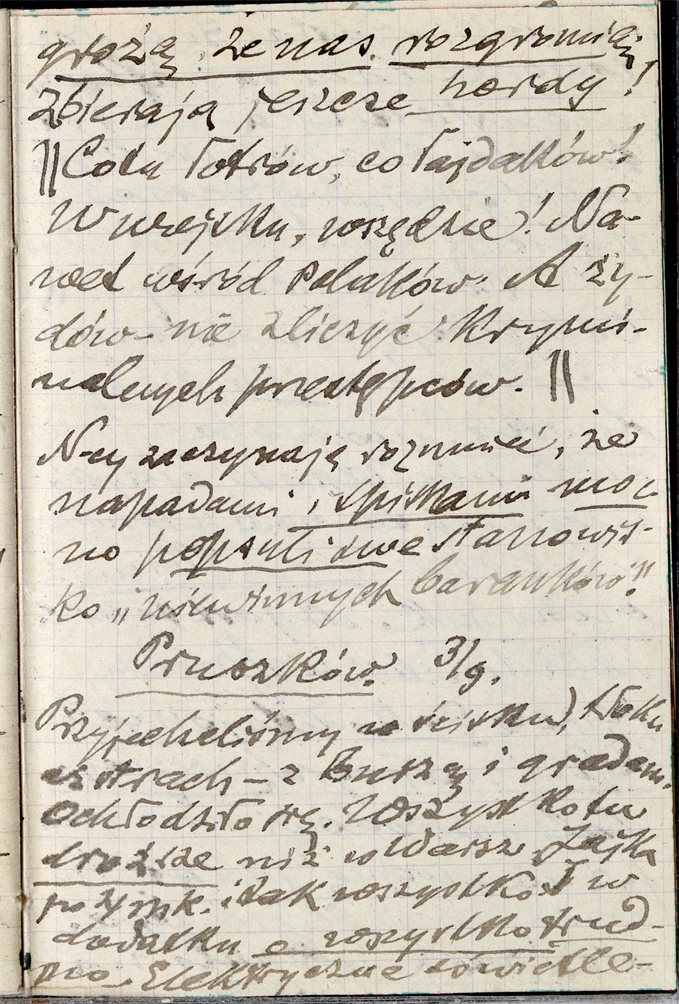 grożą, że nas rozgromią,
zbierają jeszcze hordy!
|| Co tu łotrów, co łajdaków!
W wojsku, wszędzie! Na-
wet wśród Polaków. A ży-
dów – nie zliczyć krymi-
nalnych przestępców. ||
N-cy zaczynają rozumieć, że
napadami i spiskami moc-
no popsuli swe stanowis-
ko „niewinnych baranków".
Pruszków. 3/9.
Przyjechaliśmy w ścisku, tłoku
w strach – z burzą i gradem.
Ochłodziło się. Wszystko tu
droższe niż w Warsz. Jajka
po mk. i tak wszystko. I w
dodatku o wszystko trud-
no. Elektryczne oświetle-